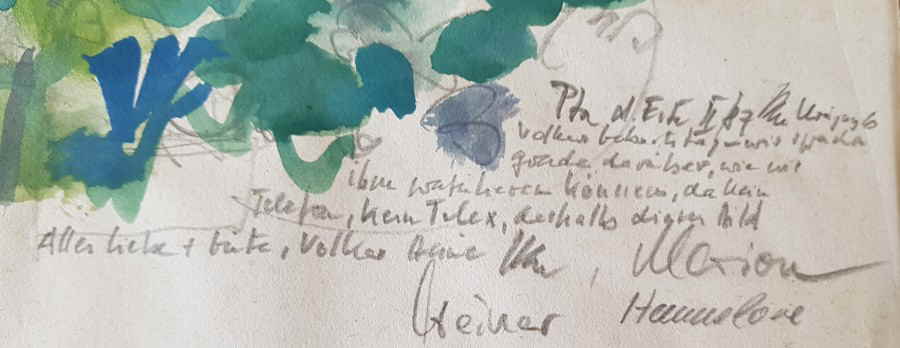 Pta d. Este II
Volkers Geburtstag – wir sprachen
gerade darüber, wie wir
ihm gratulieren können, da kein
Telefon, kein Telex, deshalb dieses Bild
Alles Liebe + Gute, Volker Deine
, Marion
Heiner Hannelore